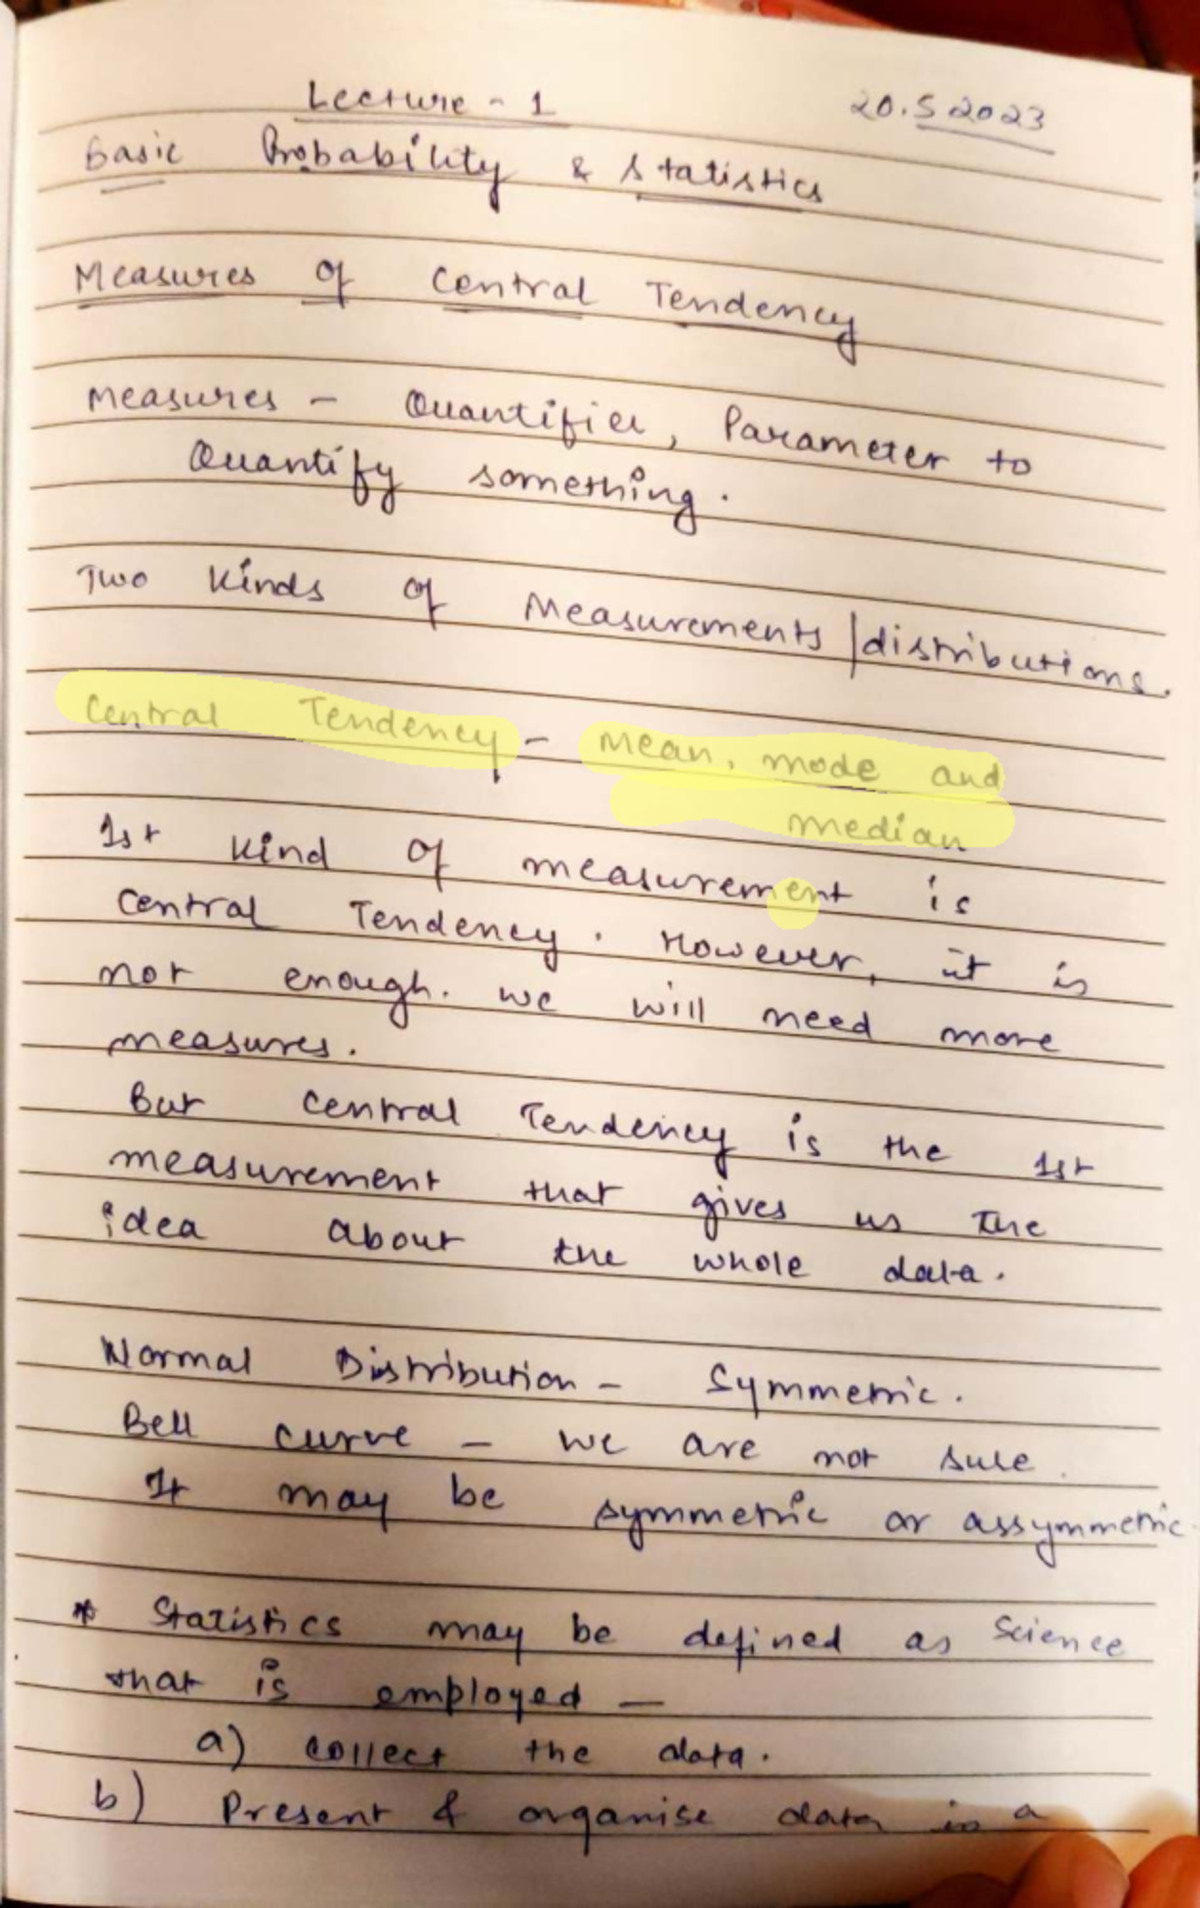 Lecture - 1
20.5 2023
Basic Probability & Statistics
Measures of Central Tendency
Measures - Quantifier, Parameter to
Quantify something.
Two Kinds of Measurements / distributions.
Central Tendency - Mean, mode and
median
1st Kind of measurement is
Central Tendency. However, it is
not enough. we will need more
measures.
But Central Tendency is the 1st
measurement that gives us the
idea about the whole data.
Normal Distribution - Symmetric.
Bell curve - we are not sure.
It may be symmetric or assymmetric.
* Statistics may be defined as Science
that is employed -
a) collect the data.
b) Present & organise data in a